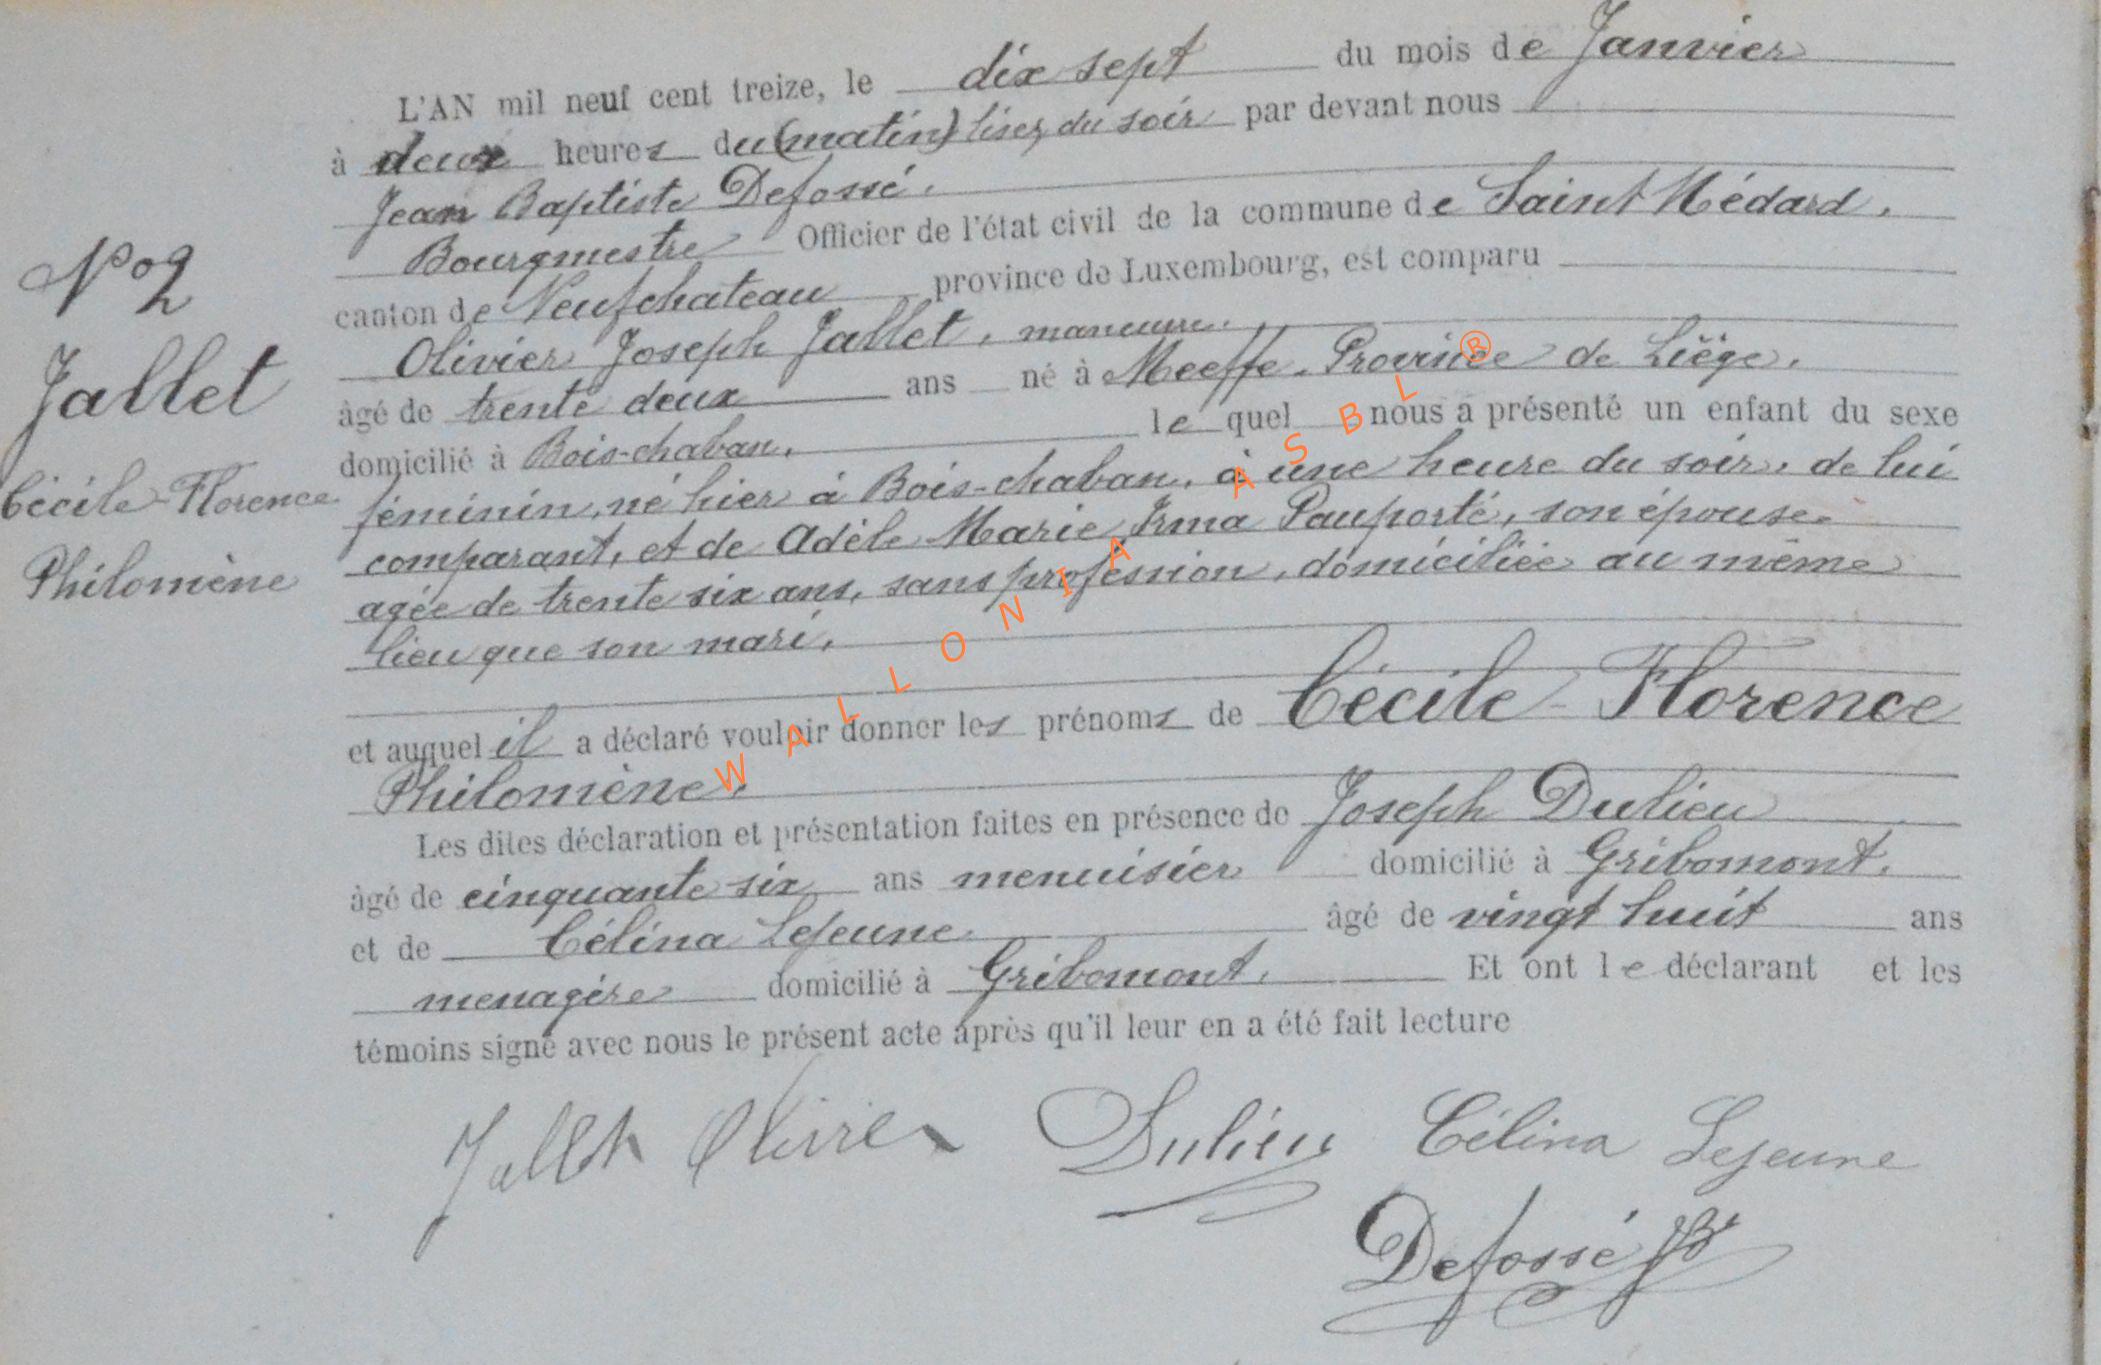 L'AN mil neuf cent treize, le dix sept du mois de Janvier
à deux heures du (matin) lisez du soir par devant nous
Jean Baptiste Defossé.
Bourgmestre Officier de l'état civil de la commune de Saint Médard.
canton de Neufchateau province de Luxembourg, est comparu
Olivier Joseph Jallet, manœuvre.
âgé de trente deux ans né à Meeffe. Province de Liège.
domicilié à Bois-chaban. le quel nous a présenté un enfant du sexe
féminin, né hier à Bois-chaban, à une heure du soir, de lui
comparant, et de Adèle Marie Irma Pauporté, son épouse
agée de trente six ans, sans profession, domiciliée au même
lieu que son mari.
et auquel il a déclaré vouloir donner les prénoms de Cécile-Florence
Philomène.
Les dites déclaration et présentation faites en présence de Joseph Dulieu
âgé de cinquante six ans menuisier domicilié à Gribomont.
et de Célina Lejeune âgé de vingt huit ans
menagère domicilié à Gribomont. Et ont le déclarant et les
témoins signé avec nous le présent acte après qu'il leur en a été fait lecture
Jallet Olivier Dulieu Célina Lejeune
Defossé JB
N° 2
Jallet
Cécile-Florence
Philomène
WALLONIA ASBL ®